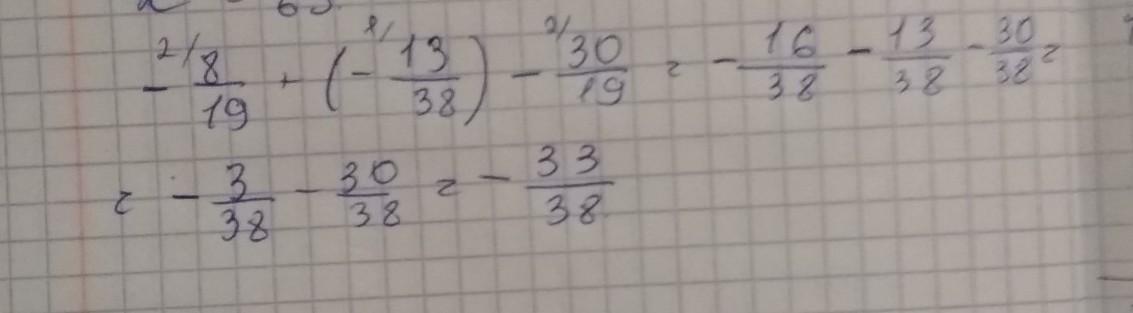 - 2/ 8/19 + (- 1/ 13/38) - 2/ 30/19 = - 16/38 - 13/38 - 30/38 =
= - 3/38 - 30/38 = - 33/38